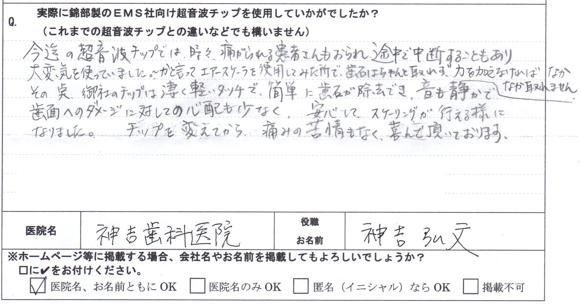 Q. 実際に錦部製のEMS社向け超音波チップを使用していかがでしたか？
（これまでの超音波チップとの違いなどでも構いません）
今迄の超音波チップでは、時々、痛がられる患者さんもおられ、途中で中断することもあり
大変気を使っていました。かと言ってエアースケーラーを使用してみた所で、歯石はちゃんと取れず、力を加えなければ なか
なか取れません
その点、御社のチップは凄く軽いタッチで、簡単に歯石が除去でき、音も静かで
歯面へのダメージに対しての心配も少なく、安心して、スケーリングが行える様に
なりました。 チップを変えてから、痛みの苦情もなく、喜んで頂いております。
医院名 神吉歯科医院 役職 お名前 神吉 弘文
※ホームページ等に掲載する場合、会社名やお名前を掲載してもよろしいでしょうか？
口に✓をお付けください。
☑医院名、お名前ともにOK □医院名のみOK □匿名（イニシャル）ならOK □掲載不可